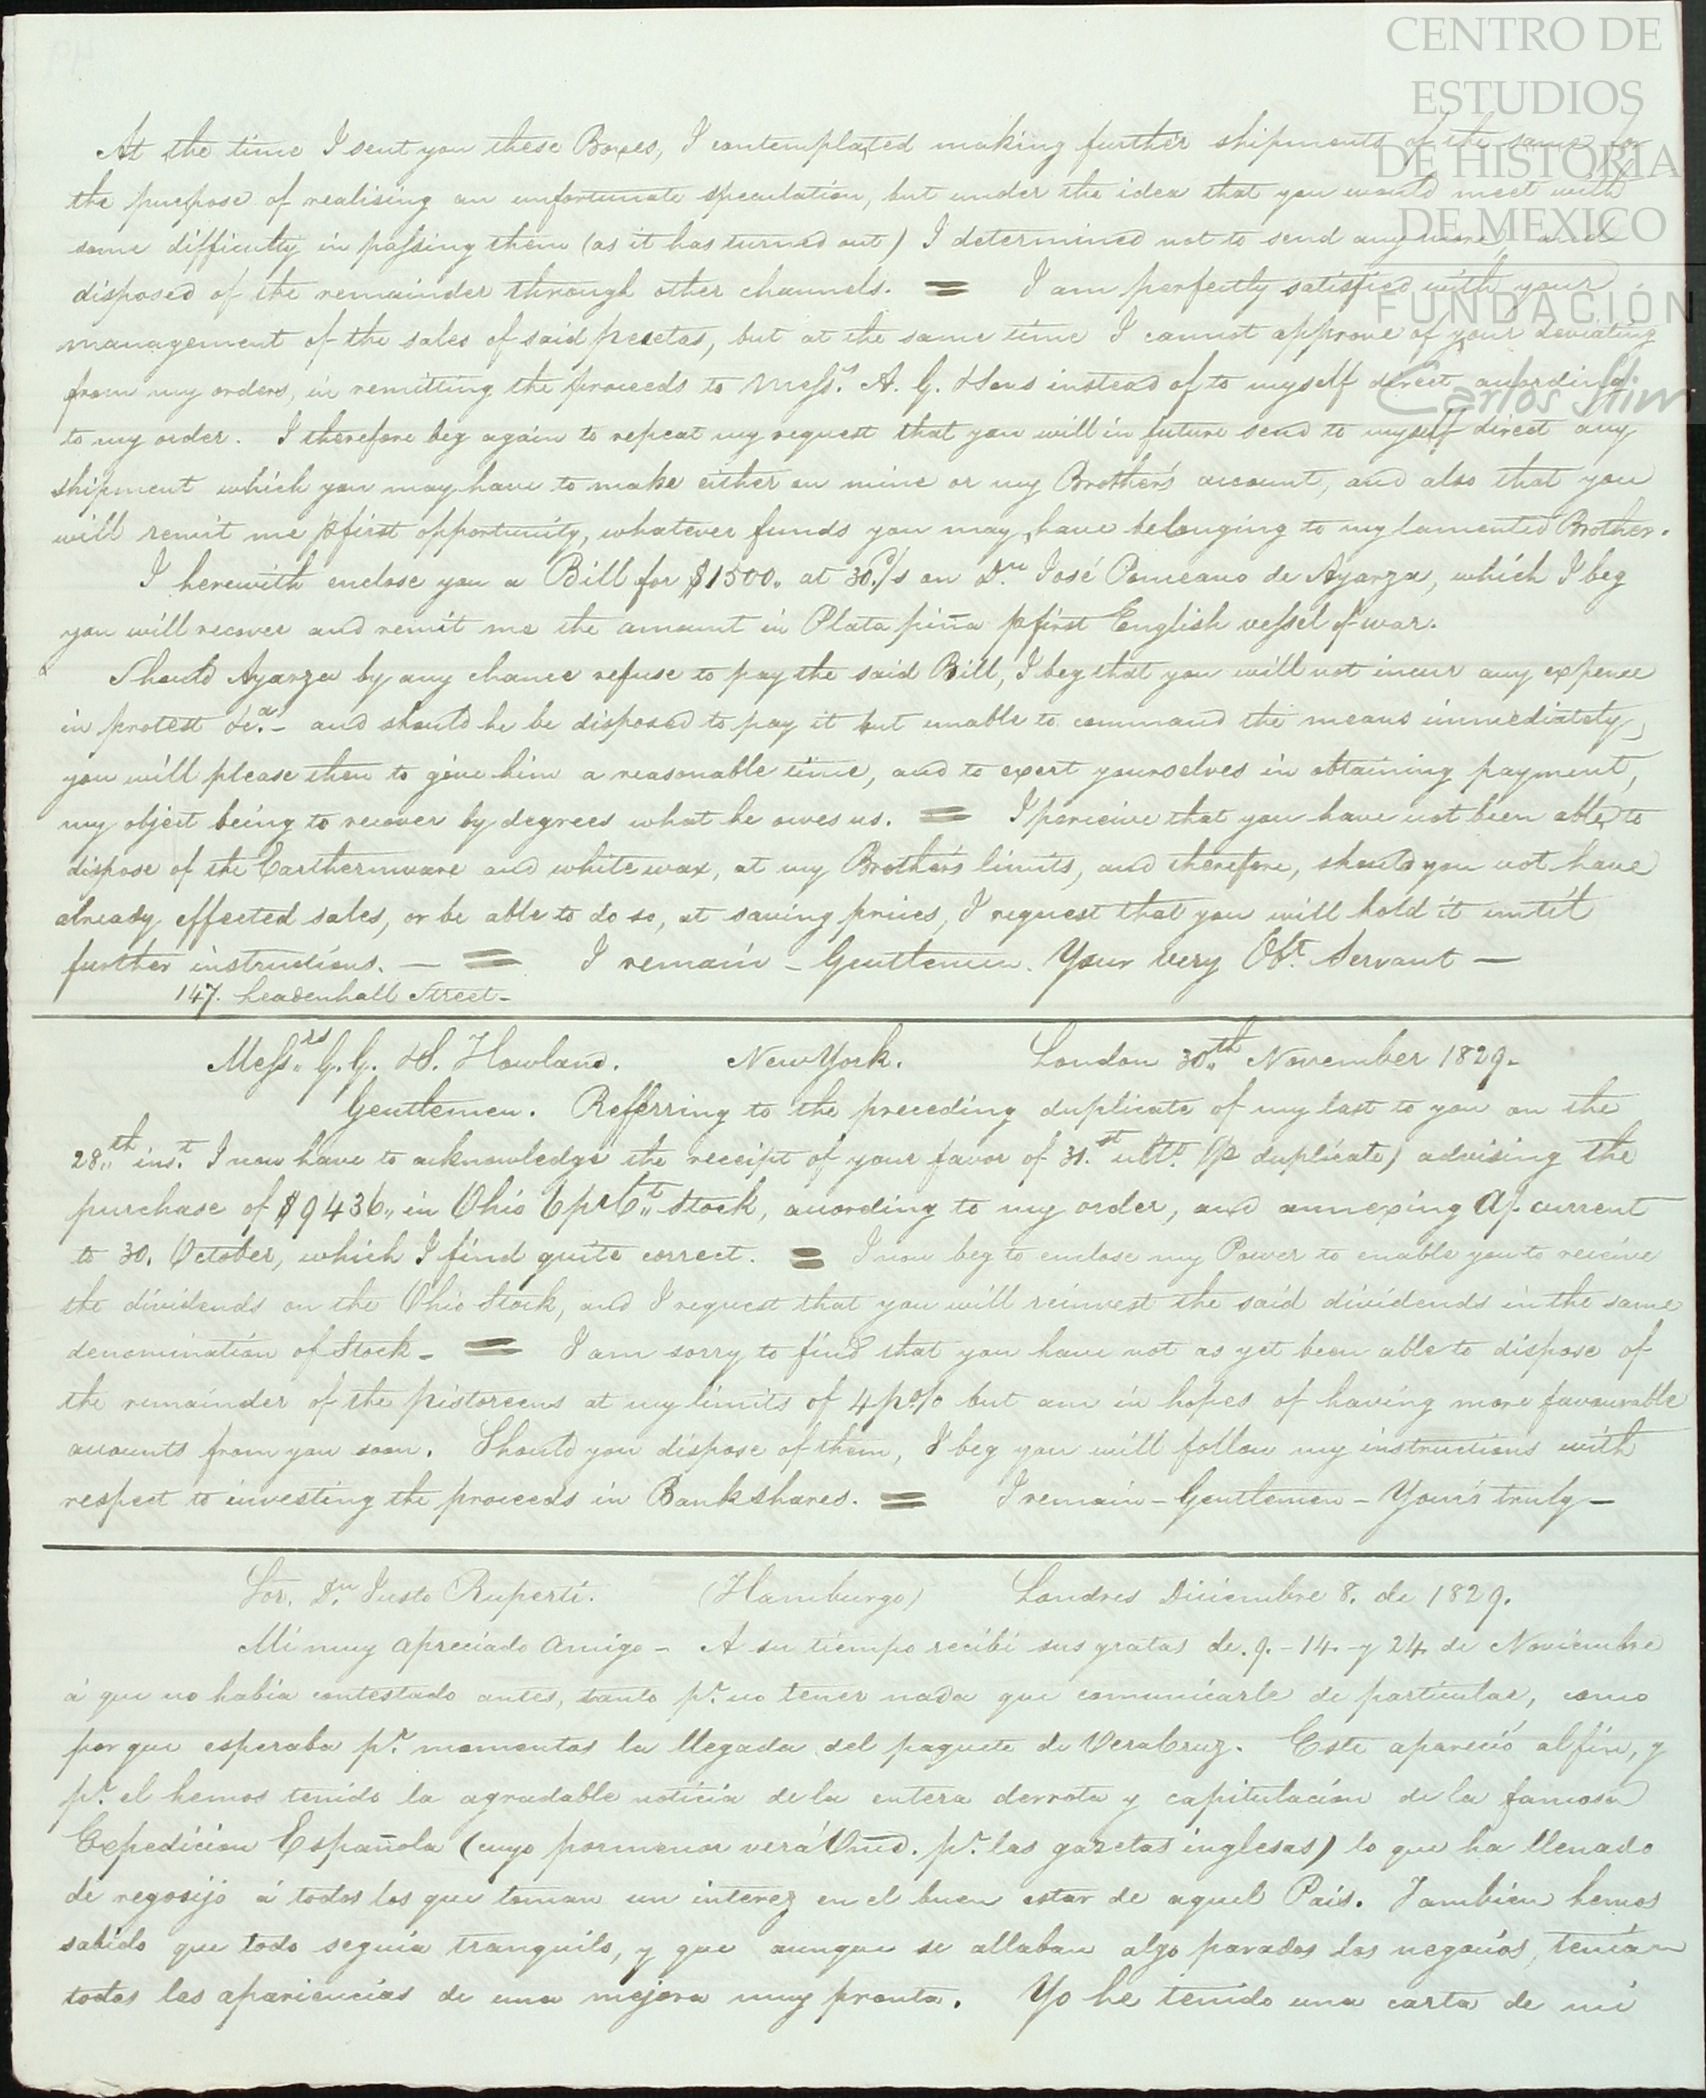 CENTRO DE
ESTUDIOS
DE HISTORIA
DE MEXICO
FUNDACIÓN
Carlos Slim
At the time I sent you these Boxes, I contemplated making further shipments of the same for
the purpose of realising an unfortunate speculation, but under the idea that you would meet with
some difficulty in passing them (as it has turned out) I determined not to send any more, and
disposed of the remainder through other channels. = I am perfectly satisfied with your
management of the sales of said pesetas, but at the same time I cannot approve of your deviating
from my orders, in remitting the proceeds to Mess.rs A. G. & Sons instead of to myself direct according
to my order. I therefore beg again to repeat my request that you will in future send to myself direct any
shipment which you may have to make either on mine or my Brother's account, and also that you
will remit me p first opportunity, whatever funds you may have belonging to my lamented Brother.
I herewith enclose you a Bill for $1500. at 30 d/s on D.n José Pomeano de Ayarza, which I beg
you will recover and remit me the amount in Plata piña p first English vessel of war.
Should Ayarza by any chance refuse to pay the said Bill, I beg that you will not incur any expense
in protest &c.a - and should he be disposed to pay it but unable to command the means immediately,
you will please then to give him a reasonable time, and to exert yourselves in obtaining payment,
my object being to recover by degrees what he owes us. = I perceive that you have not been able to
dispose of the Earthernware and white wax, at my Brother's limits, and therefore, should you not have
already effected sales, or be able to do so, at saving prices, I request that you will hold it until
further instructions. — = I remain - Gentlemen. Your very Ob.t Servant —
147. Leadenhall Street -
Mess.rs G. G. & S. Howland. New York. London 30.th November 1829 -
Gentlemen. Refferring to the preceding duplicate of my last to you on the
28.th ins.t I now have to acknowledge the receipt of your favor of 31.st ult.o (p duplicate) advising the
purchase of $9436,, in Ohio 6 pr C.t Stock, according to my order, and annexing a/. current
to 30. October, which I find quite correct. = I now beg to enclose my Power to enable you to receive
the dividends on the Ohio Stock, and I request that you will reinvest the said dividends in the same
denomination of Stock - = I am sorry to find that you have not as yet been able to dispose of
the remainder of the pistoreens at my limits of 4 p% but am in hopes of having more favourable
accounts from you soon. Should you dispose of them, I beg you will follow my instructions with
respect to investing the proceeds in Bankshares. = I remain - Gentlemen - Your's truly -
Sor. D.n Justo Ruperti. (Hamburgo) Londres Diciembre 8. de 1829.
Mi muy apreciado amigo - A su tiempo recibi sus gratas de. 9. - 14 - y 24 de Noviembre
á que no habia contestado antes, tanto p.r no tener nada que comunicarle de particular, como
por que esperaba p.r momentos la llegada del paquete de VeraCruz. Este apareció al fin, y
p.r el hemos tenido la agradable noticia de la entera derrota y capitulacion de la famosa
Expedicion Española (cuyo pormenor verá Vmd. p.r las gazetas inglesas) lo que ha llenado
de regosijo á todos los que toman un interez en el buen estar de aquel Pais. Tambien hemos
sabido que todo seguia tranquilo, y que aunque se allaban algo parados los negocios, tenian
todas las apariencias de una mejora muy pronta. Yo he tenido una carta de mi